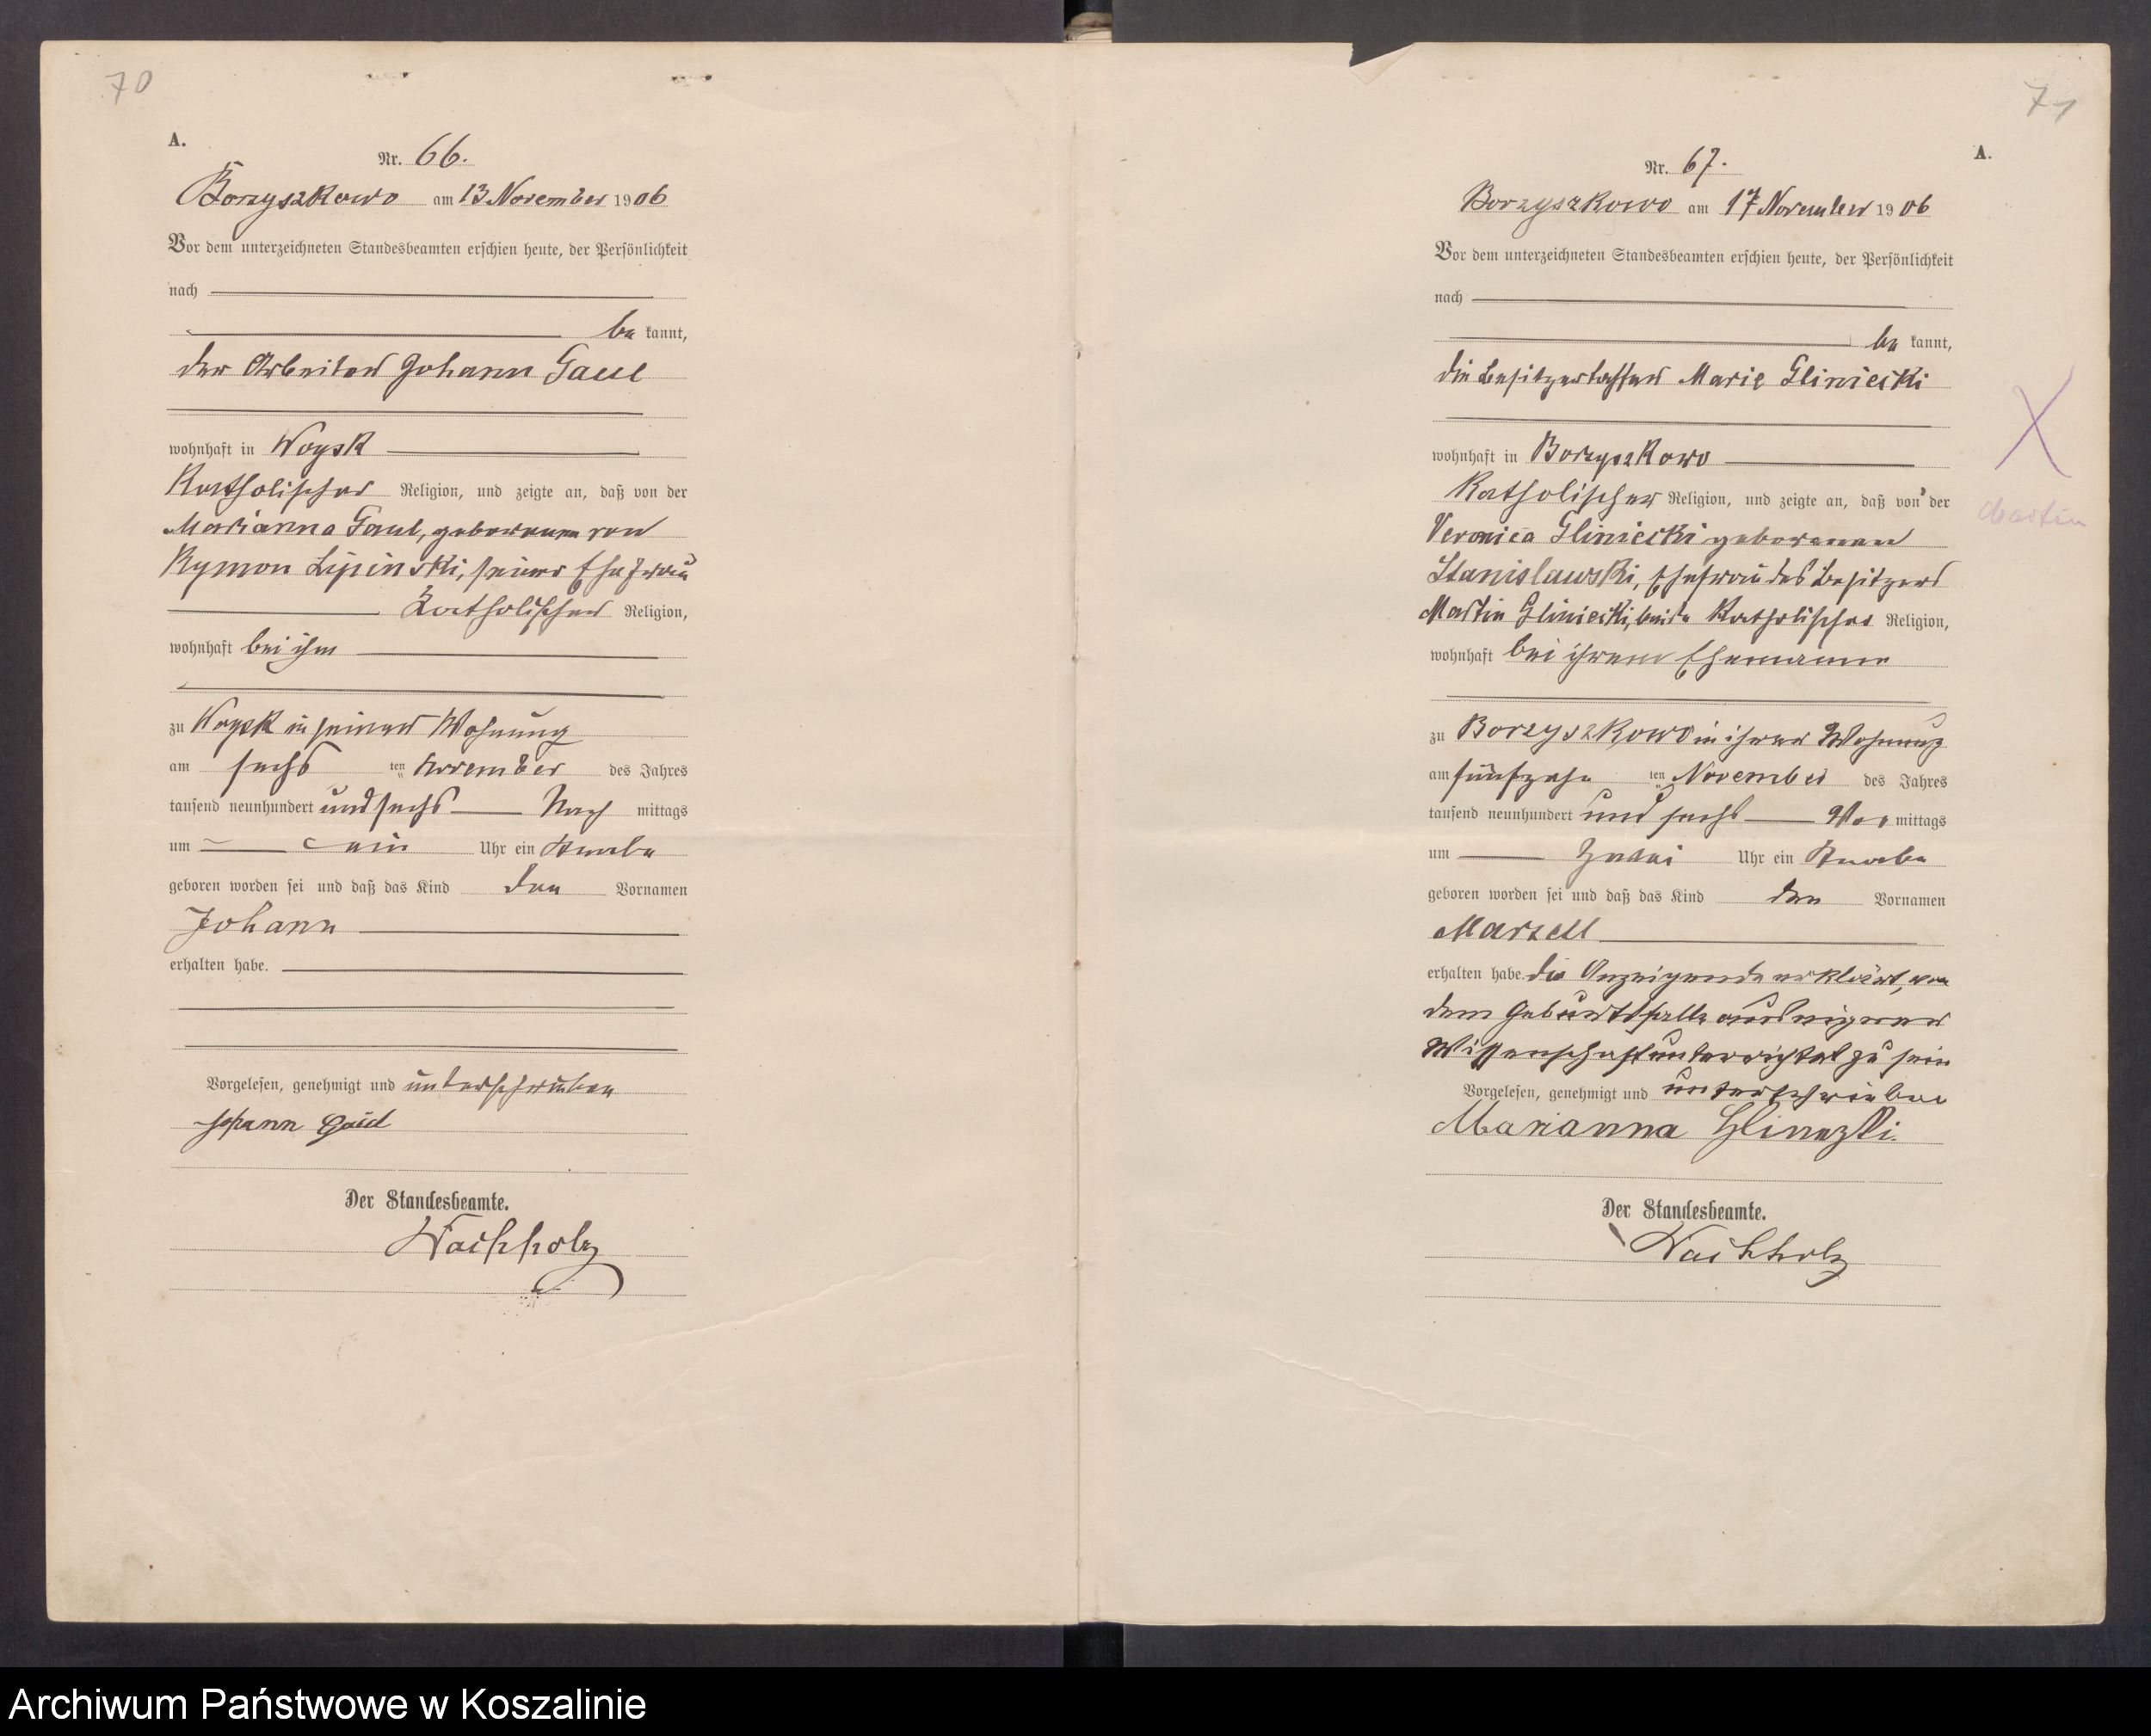 70
A.
Nr. 66.
Borzyszkowo am 13 November 1906
Vor dem unterzeichneten Standesbeamten erschien heute, der Persönlichkeit
nach
be kannt,
der Arbeiter Johann Gaul
wohnhaft in Woysk
Katholischer Religion, und zeigte an, daß von der
Marianna Gaul, geborenen von
Kymon Lipinski, seiner Ehefrau
Katholischer Religion,
wohnhaft bei ihm
zu Woysk in seiner Wohnung
am sechs ten November des Jahres
tausend neunhundert und sechs Nach mittags
um ein Uhr ein Knabe
geboren worden sei und daß das Kind den Vornamen
Johann
erhalten habe.
Vorgelesen, genehmigt und unterschrieben
Johann
Der Standesbeamte.
Wachholz
71
A.
Nr. 67.
Borzyszkowo am 17 November 1906
Vor dem unterzeichneten Standesbeamten erschien heute, der Persönlichkeit
nach
be kannt,
die Besitzertochter Marie Gliniecki
wohnhaft in Borzyszkowo
Katholischer Religion, und zeigte an, daß von der
Veronica Gliniecki geborenen
Stanislawski, Ehefrau des Besitzers
Martin Gliniecki, beide Katholischer Religion,
wohnhaft bei ihrem Ehemanne
Martin
zu Borzyszkowo in ihrer Wohnung
am fünfzehn ten November des Jahres
tausend neunhundert und sechs Vor mittags
um zwei Uhr ein Knabe
geboren worden sei und daß das Kind den Vornamen
Marzell
erhalten habe. die Anzeigende erklärt, von
dem Geburtsfalle aus eigener
Wissenschaft unterrichtet zu sein
Vorgelesen, genehmigt und unterschrieben
Marianna
Der Standesbeamte.
Wachholz
Archiwum Państwowe w Koszalinie